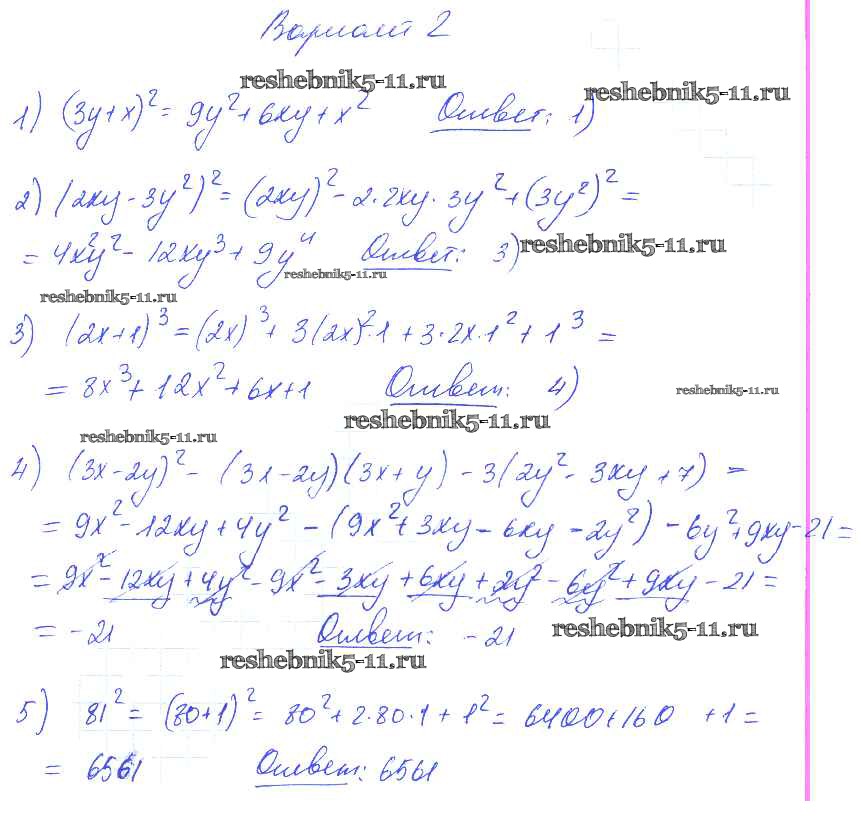 Вариант 2
reshebnik5-11.ru
reshebnik5-11.ru
1) (3y+x)² = 9y²+6xy+x² Ответ: 1)
2) (2xy - 3y²)² = (2xy)² - 2·2xy·3y² + (3y²)² =
= 4x²y² - 12xy³ + 9y⁴ Ответ: 3) reshebnik5-11.ru
reshebnik5-11.ru
reshebnik5-11.ru
3) (2x+1)³ = (2x)³ + 3(2x)²·1 + 3·2x·1² + 1³ =
= 8x³ + 12x² + 6x + 1 Ответ: 4) reshebnik5-11.ru
reshebnik5-11.ru
reshebnik5-11.ru
4) (3x-2y)² - (3x-2y)(3x+y) - 3(2y² - 3xy + 7) =
= 9x² - 12xy + 4y² - (9x² + 3xy - 6xy - 2y²) - 6y² + 9xy - 21 =
= 9x² - 12xy + 4y² - 9x² - 3xy + 6xy + 2y² - 6y² + 9xy - 21 =
= -21 Ответ: -21 reshebnik5-11.ru
reshebnik5-11.ru
5) 81² = (80+1)² = 80² + 2·80·1 + 1² = 6400+160 +1 =
= 6561 Ответ: 6561